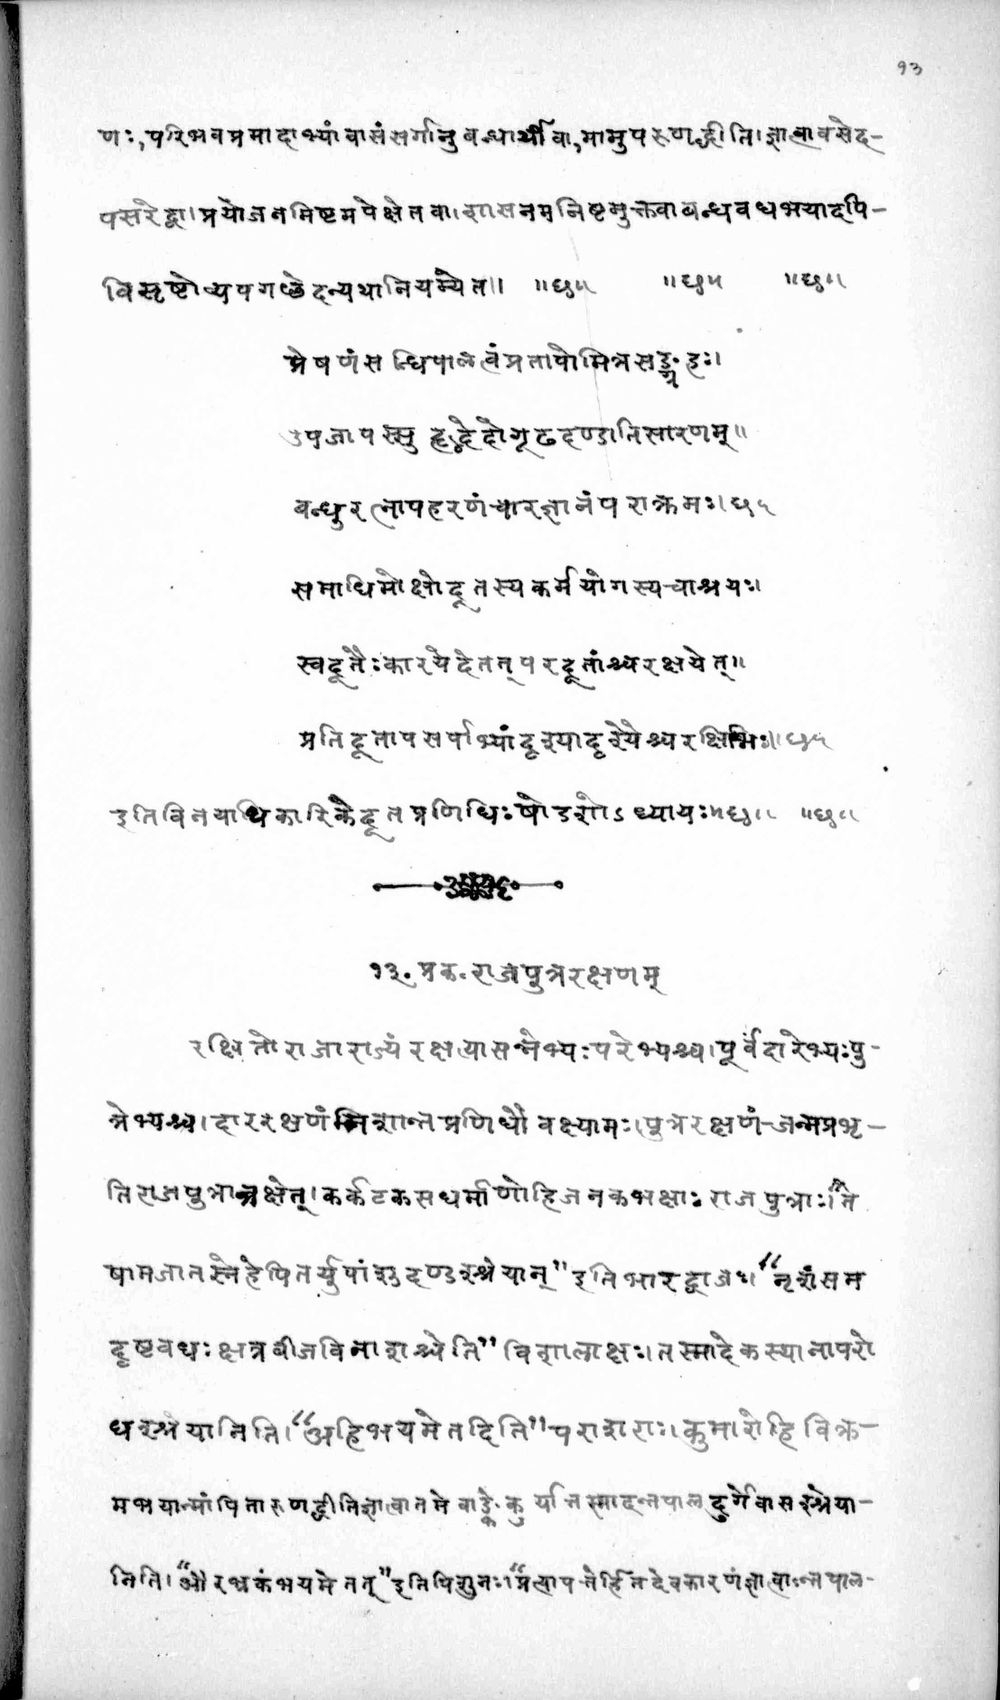 १३
णः, परिभवप्रमादाभ्यां वा संसर्गानुबन्धार्थी वा, मामुपरुणद्धीति। ज्ञात्वा वसेद-
पसरेद्वा। प्रयोजनमिष्टमपेक्षेत वा। शासनमनिष्टमुक्त्वा बन्धवधभयादपि-
विसृष्टोप्यपगच्छेदन्यथा नियम्येत॥ ॥छ॥ ॥छ॥ ॥छ॥
प्रेषणं सन्धिपालत्वं प्रतापो मित्रसङ्ग्रहः।
उपजापस्सुहृद्भेदो गूढदण्डातिसारणम्॥
बन्धुरत्नापहरणं चारज्ञानं पराक्रमः। छ॥
समाधिमोक्षो दूतस्य कर्मयोगस्य चाश्रयः।
स्वदूतैः कारयेदेतत् परदूतांश्च रक्षयेत्॥
प्रतिदूतापसर्पाभ्यां दृश्यादृश्यैश्च रक्षिभिः॥ छ॥
इति विनयाधिकारिके दूतप्रणिधिः षोडशोऽध्यायः॥छ॥ ॥छ॥
१३. प्रक. राजपुत्ररक्षणम्
रक्षितो राजा राज्यं रक्षत्यासन्नेभ्यः परेभ्यश्च। पूर्वं दारेभ्यः पु-
त्रेभ्यश्च। दाररक्षणं निशान्तप्रणिधौ वक्ष्यामः। पुत्ररक्षणं-जन्मप्रभृ-
ति राजपुत्रान्रक्षेत्। कर्कटकसधर्माणो हि जनकभक्षाः राजपुत्राः। "ते
षामजातस्नेहे पितर्युपांशुदण्डश्श्रेयान्" इति भारद्वाजः। "नृशंसम
दृष्टवधः क्षत्रबीजविनाशश्चेति" विशालाक्षः। तस्मादेकस्थानावरो
धश्श्रेयानिति। "अहिभयमेतदिति" पराशराः। कुमारो हि विक्र-
मभयान्मां पिता रुणद्धीति ज्ञात्वा तमेवाङ्के कुर्यात्तस्मादन्तपालदुर्गे वासश्श्रेया-
निति। "औरभ्रकं भयमेतत्" इति पिशुनः। "प्रत्यापत्तेर्हि तदेव कारणं ज्ञात्वाऽन्तपाल-